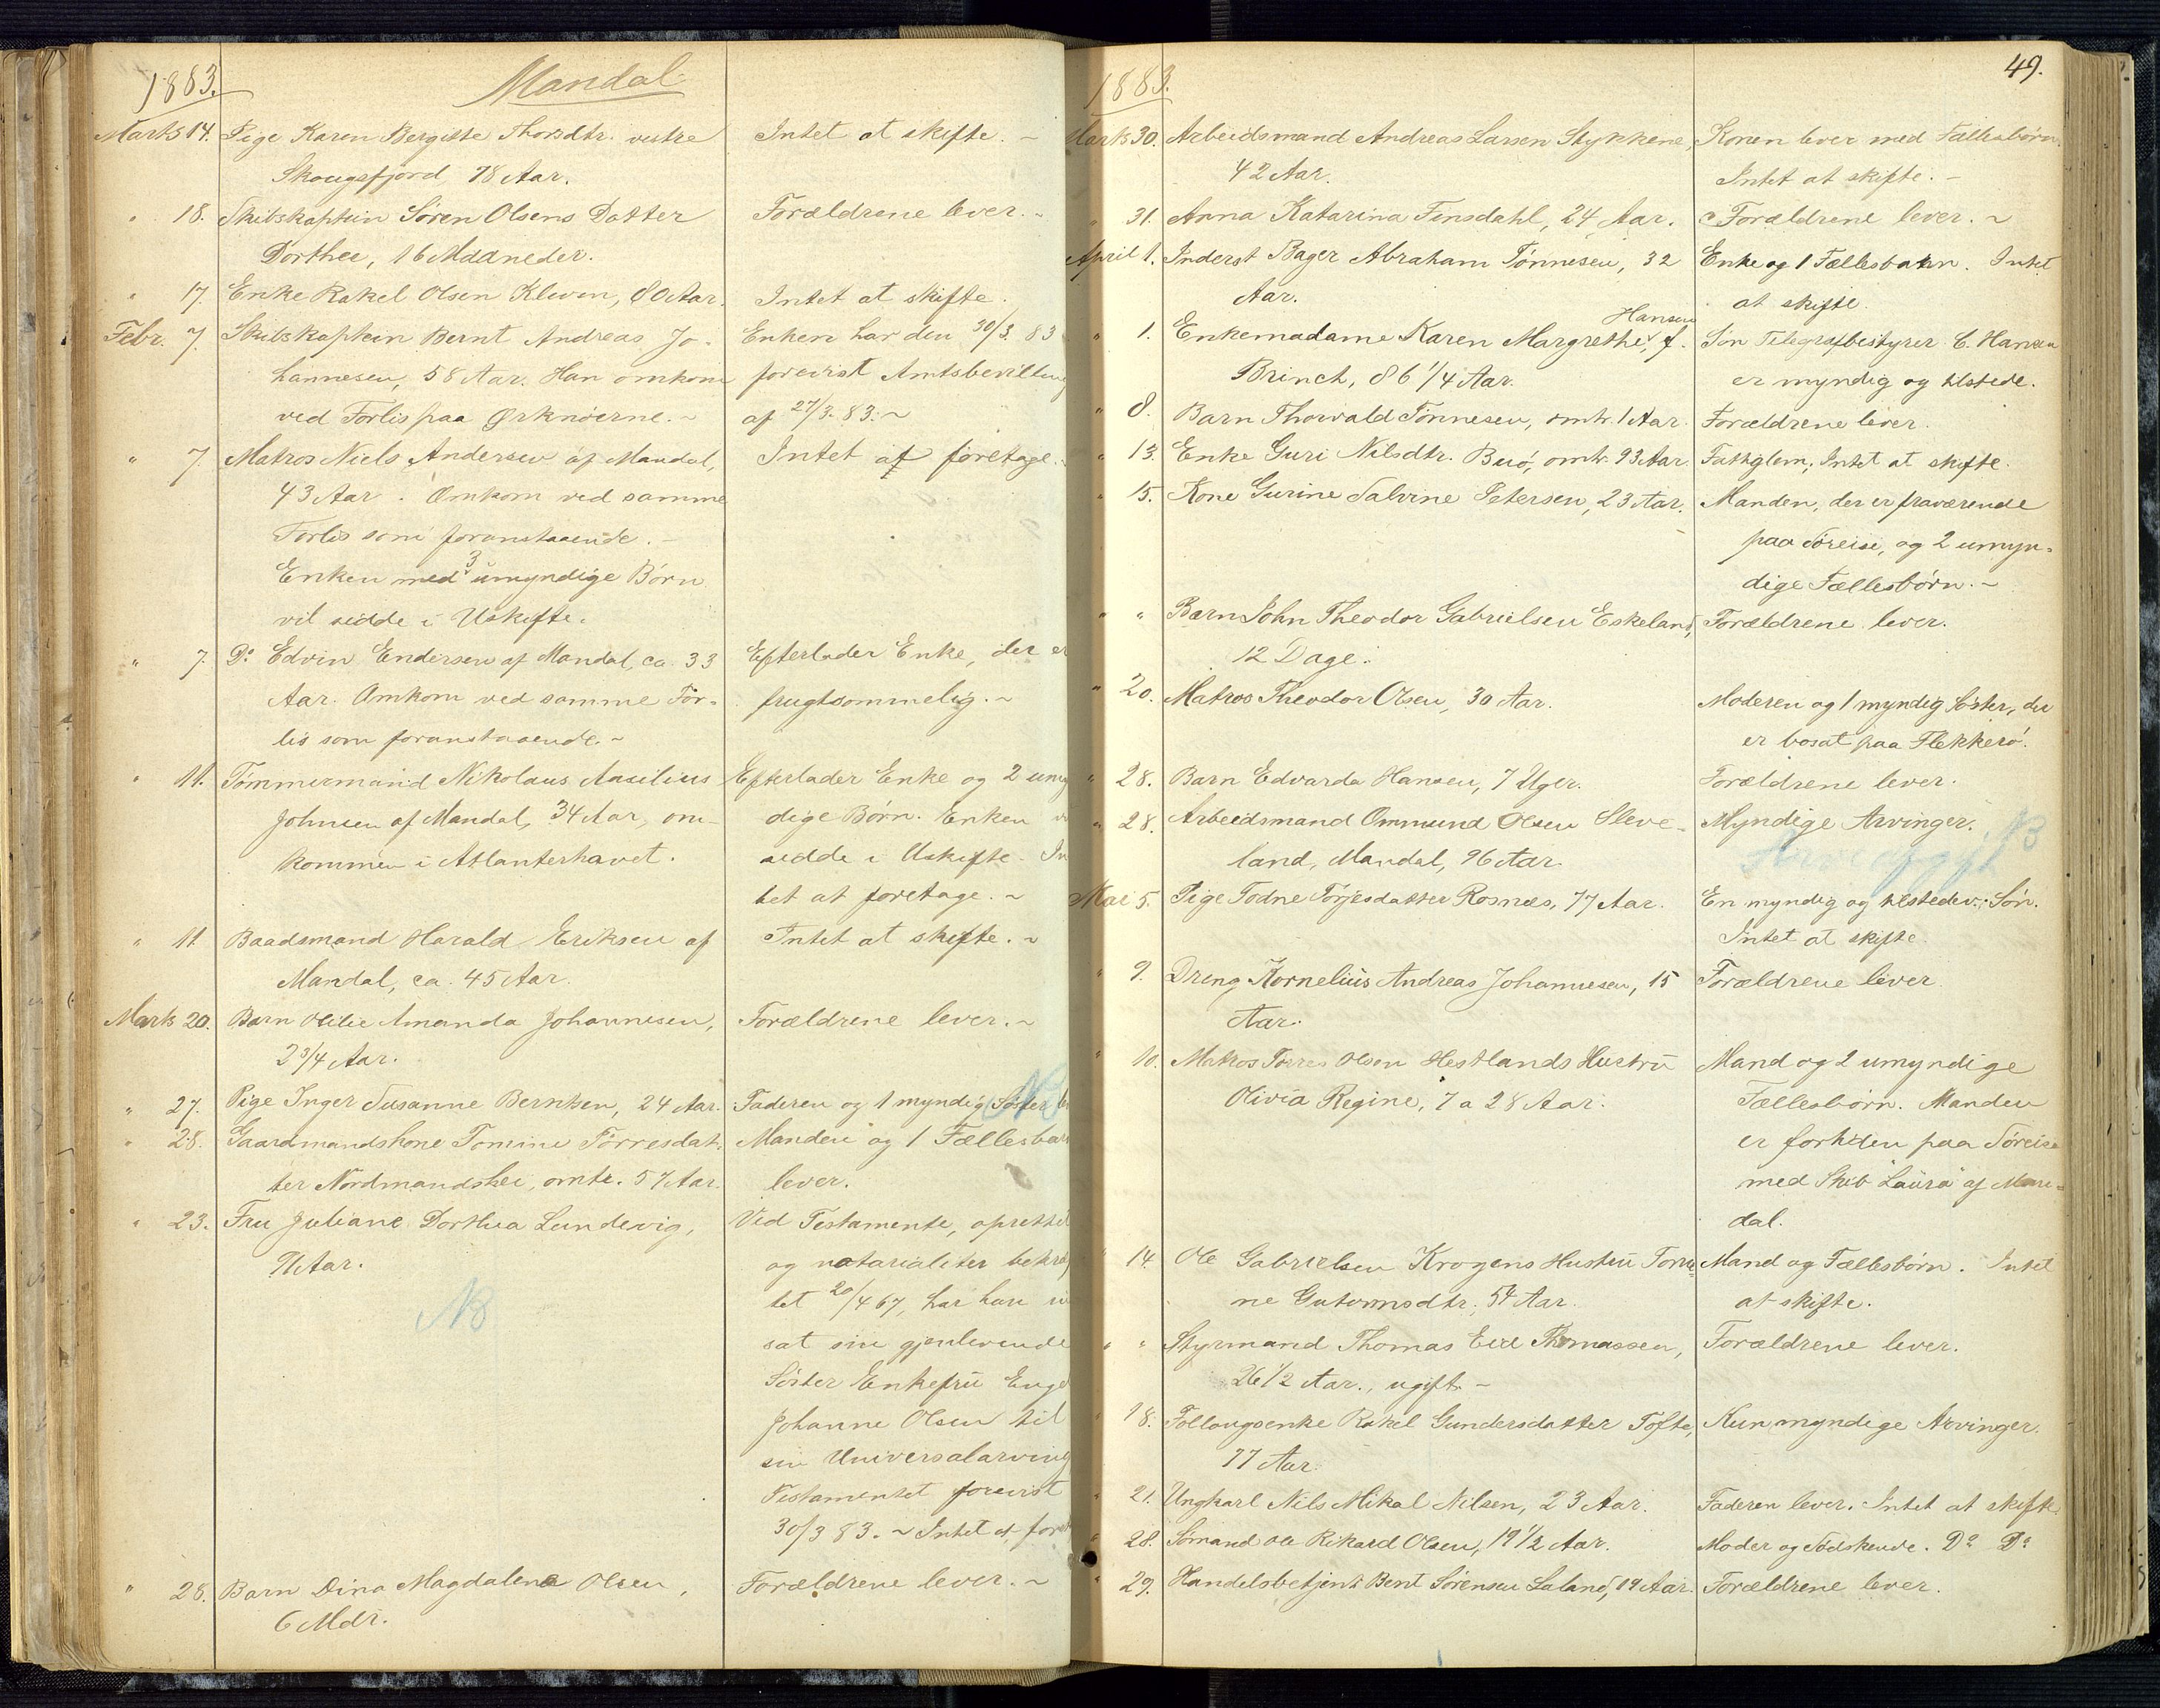 1883.
Mandal.
Marts 14. Pige Karen Bergitte Thorsdtr. vestre Intet at skifte. ~
Skougsfjord 78 Aar.
" 18. Skibskaptein Søren Olsens Datter Forældrene lever. ~
Dorthee, 16 Maaneder.
" 17. Enke Rakel Olsen Kleven, 80 Aar. Intet at skifte.
Febr. 7. Skibskaptein Bernt Andreas Jo- Enken har den 30/3 83
hannesen, 58 Aar. Han omkom forevist Amtsbevilling
ved Forlis paa Ørknøerne. ~ af 27/3 83. ~
" 7. Matros Niels Andersen af Mandal, Intet at foretage.
43 Aar. Omkom ved samme
Forlis som foranstaaende. ~
Enken med 3 umyndige Børn
vil sidde i Uskifte.
" 7. Do Edvin Endersen af Mandal, ca. 33 Efterlader Enke, der er
Aar. Omkom ved samme For- frugtsommelig. ~
lis som foranstaaende. ~
" 11. Tømmermand Nikolaus Efterlader Enke og 2 umyn
Johnsen af Mandal, 34 Aar, om- dige Børn. Enken
kommen i Atlanterhavet. sidde i Uskifte. In
tet at foretage. ~
" 11. Baadsmand Harald Eriksen af Intet at skifte. ~
Mandal, ca. 45 Aar.
Marts 20. Barn Otilie Amanda Johannesen, Forældrene lever. ~
2 3/4 Aar.
" 27. Pige Inger Susanne Berntsen, 24 Aar. Faderen og 1 myndig Søster
" 28. Gaardmandskone Tomine Tørresdat- Manden og 1 Fællesbarn
ter Nordmandshei, omtr. 57 Aar. lever.
" 23. Fru Juliane Dorthea Lundevig, Ved Testamente, oprettet
71 Aar. og notarialiter bekræf
NB
tet 20/4 67, har hun ind
sat sin gjenlevende
Søster Enkefru Enge
Johanne Olsen til
sin Universalarving
Testamentet forevist
30/3 83. ~ Intet at fore
" 28. Barn Dina Magdalena Olsen, Forældrene lever. ~
6 Mdr.
49.
1883.
Marts 30. Arbeidsmand Andreas Larsen Stykkene, Konen lever med Fællesbørn.
42 Aar. Intet at skifte. ~
" 31. Anna Katarina Finsdahl, 24 Aar. Forældrene lever. ~
April 1. Inderst Bager Abraham Tønnesen, 32 Enke og 1 Fællesbarn. Intet
Aar. at skifte.
Hansen
" 1. Enkemadame Karen Margrethe, f. Søn Telegrafbestyrer C. Hansen
Brinch, 86 1/4 Aar. er myndig og tilstede.
" 8. Barn Thorvald Tønnesen, omtr. 1 Aar. Forældrene lever.
" 13. Enke Guri Nilsdtr. Buø, omtr. 93 Aar. Fattiglem, Intet at skifte.
" 15. Kone Gurine Salvine Petersen, 23 Aar. Manden, der er fraværende
paa Søreise, og 2 umyn-
dige Fællesbørn. ~
" " Barn John Theodor Gabrielsen Eskeland, Forældrene lever.
12 Dage.
" 20. Matros Theodor Olsen, 30 Aar. Moderen og 1 myndig Søster, der
er bosat paa Flekkerø.
" 28. Barn Edvarda Hansen, 7 Uger. Forældrene lever.
" 28. Arbeidsmand Ommund Olsen Sleve- Myndige Arvinger.
NB
land, Mandal, 96 Aar.
Mai 5. Pige Todne Tørjesdatter Rosnæs, 77 Aar. En myndig og tilstedev. Søn.
Intet at skifte.
" 9. Dreng Kornelius Andreas Johannesen, 15 Forældrene lever.
Aar.
" 10. Matros Tørres Olsen Hestlands Hustru Mand og 2 umyndige
Olivia Regine, 7 a 28 Aar. Fællesbørn. Manden
er fortiden paa Søreise
med Skib "Laura" af Man-
dal.
" 14. Ole Gabrielsen Krogens Hustru Mand og Fællesbørn. Intet
ne Gutormsdtr, 54 Aar. at skifte.
" " Styrmand Thomas Eill Thomassen, Forældrene lever.
26 1/2 Aar., ugift. ~
" 18. Follaugsenke Rakel Gundersdatter Tofte, Kun myndige Arvinger.
77 Aar.
" 21. Ungkarl Nils Mikal Nilsen, 23 Aar. Faderen lever. Intet at skifte.
" 28. Sømand Ole Rikard Olsen, 19 1/2 Aar. Moder og Sødskende. Do Do
" 29. Handelsbetjent Bent Sørensen Laland, 19 Aar. Forældrene lever.